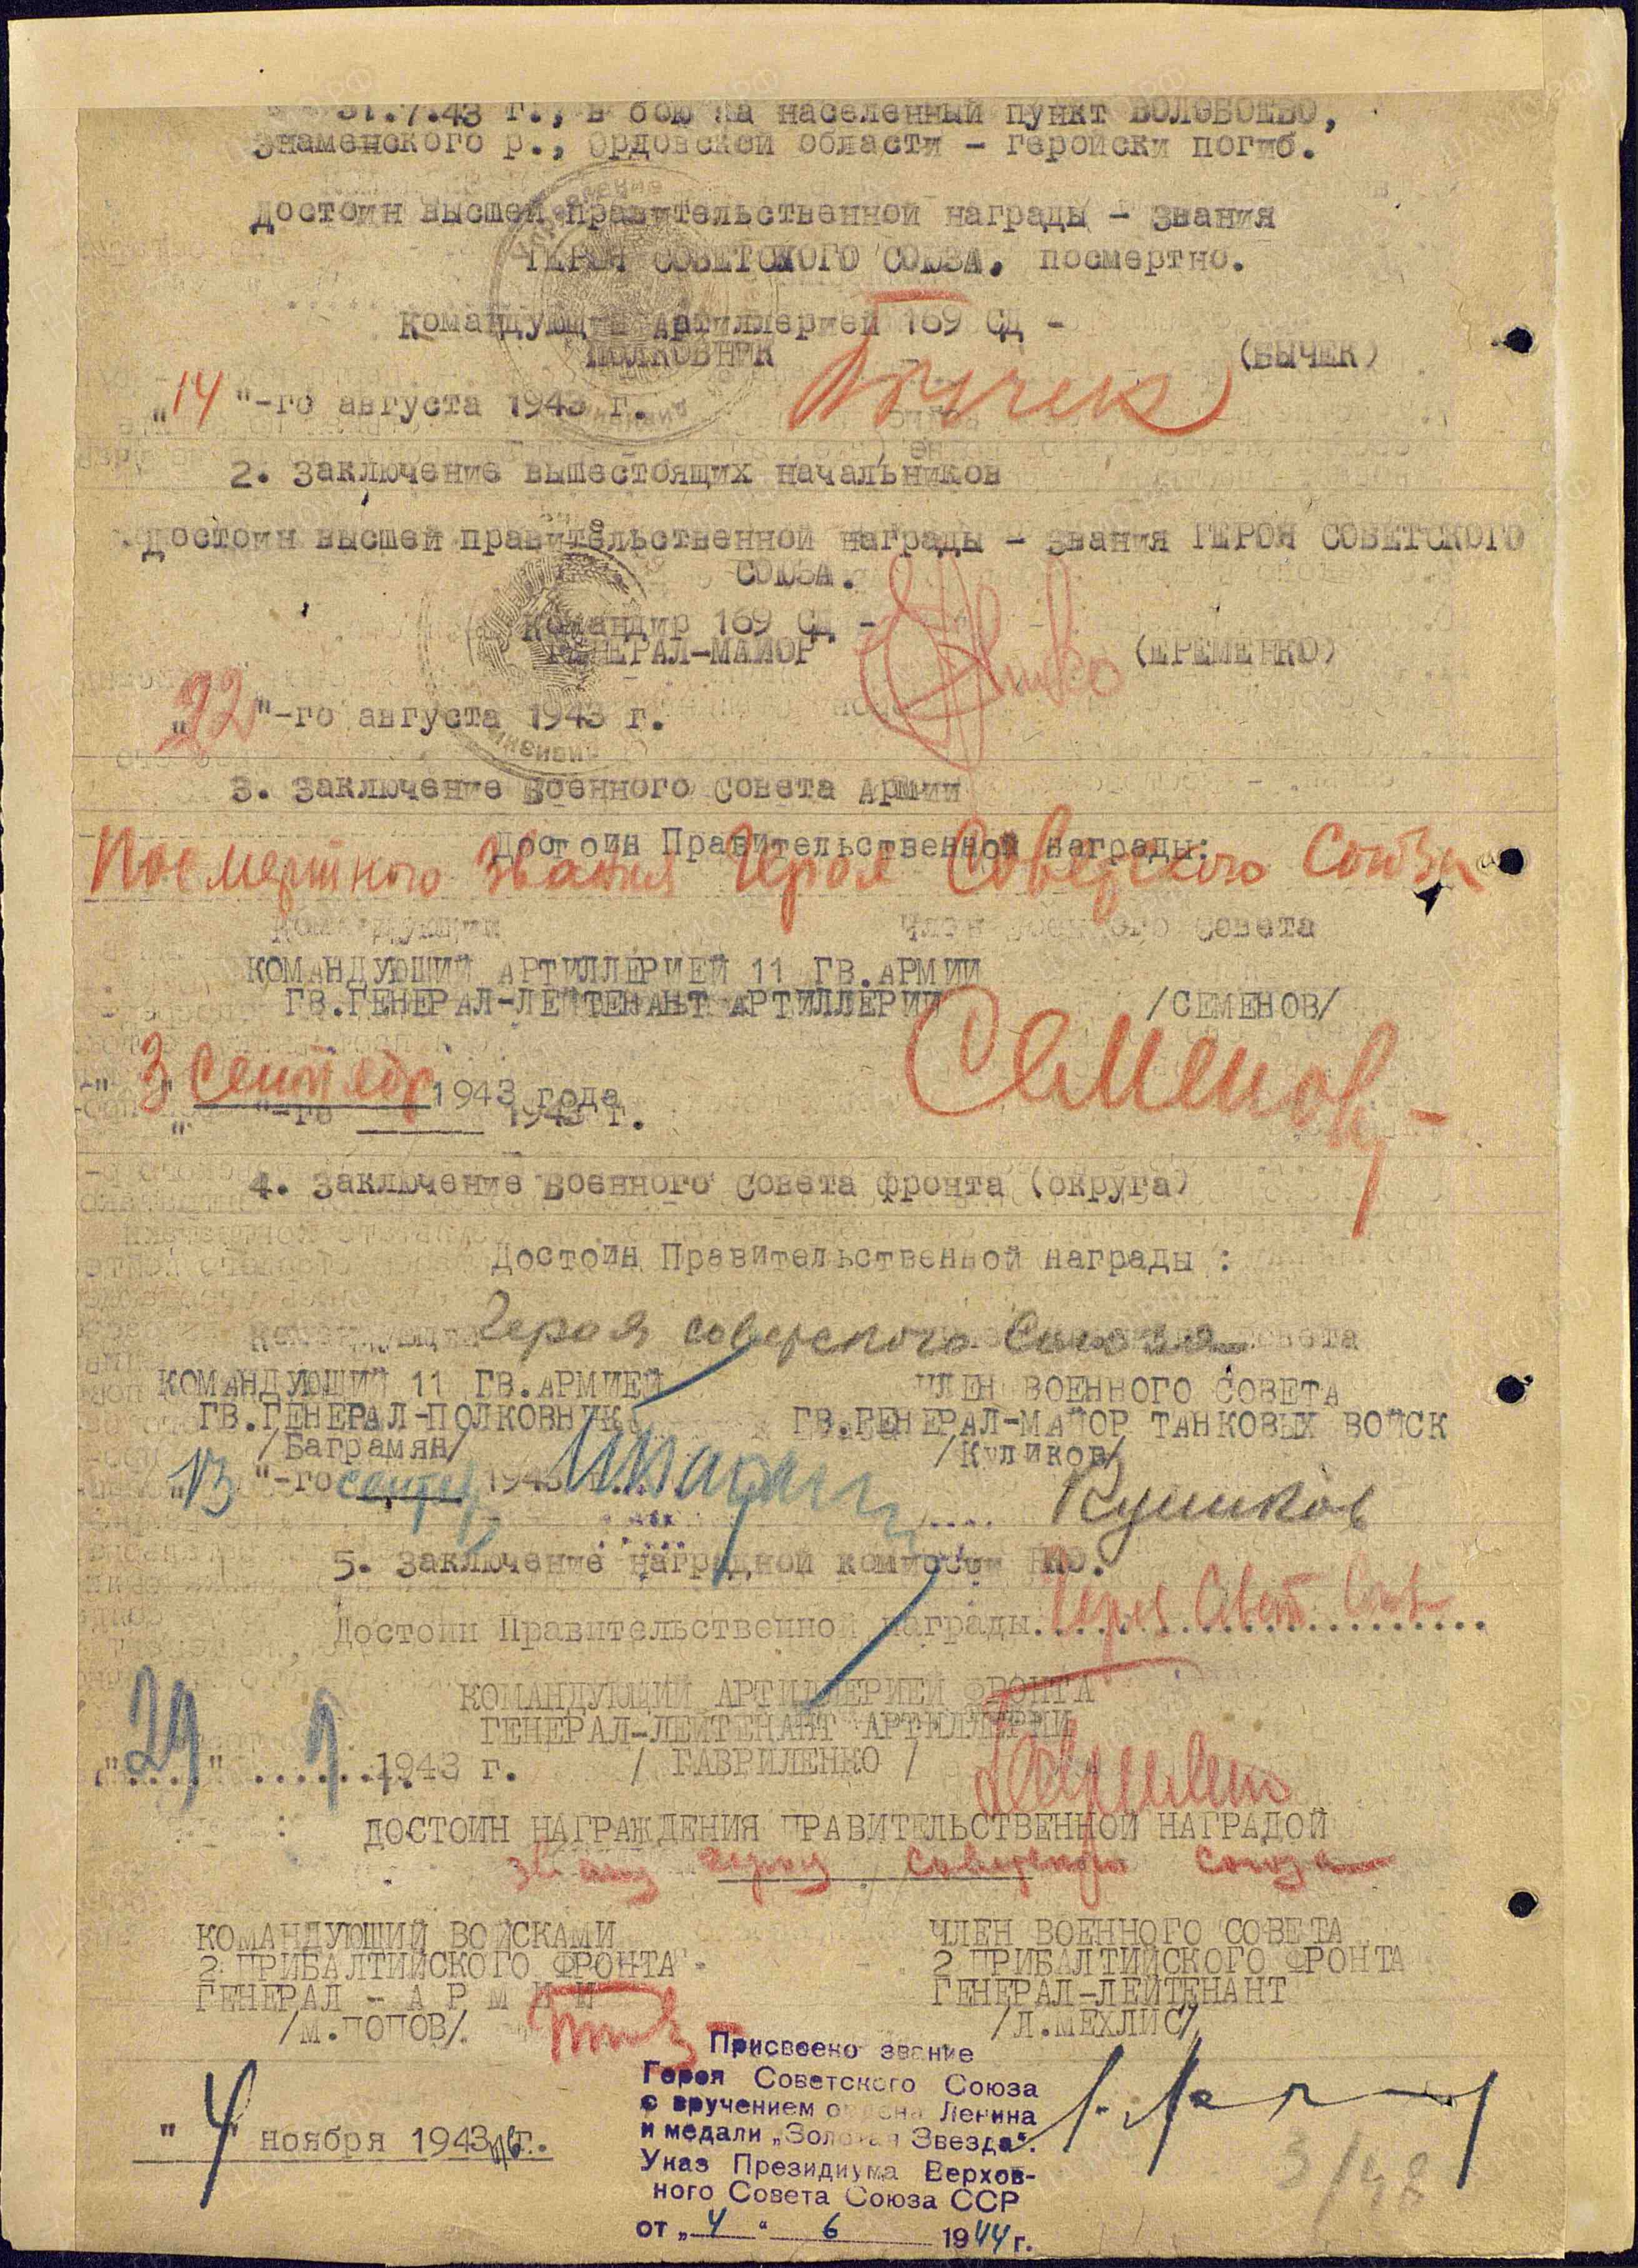 31.7.43 г., в бою за населенный пункт ВОЛОБОЕВО,
Знаменского р., Ордовской области – геройски погиб.
Достоин высшей правительственной награды – звания
ГЕРОЯ СОВЕТСКОГО СОЮЗА, посмертно.
Командующий Артиллерией 169 СД –
ПОЛКОВНИК
(БЫЧЕК)
Бычек
"14"-го августа 1943 г.
2. Заключение вышестоящих начальников
Достоин высшей правительственной награды – звания ГЕРОЯ СОВЕТСКОГО
СОЮЗА.
Командир 169 СД –
ГЕНЕРАЛ-МАЙОР
(ЕРЕМЕНКО)
"22"-го августа 1943 г.
3. Заключение Военного Совета Армии
Достоин Правительственной награды:
Посмертного звания Героя Советского Союза
Командующий Член Военного Совета
КОМАНДУЮЩИЙ АРТИЛЛЕРИЕЙ 11 ГВ.АРМИИ
ГВ.ГЕНЕРАЛ-ЛЕЙТЕНАНТ АРТИЛЛЕРИИ /СЕМЕНОВ/
Семенов
"3" Сентябр 1943 года
" "-го 1943 г.
4. Заключение Военного Совета фронта (округа)
Достоин Правительственной награды :
Героя советского Союза
КОМАНДУЮЩИЙ 11 ГВ.АРМИЕЙ ЧЛЕН ВОЕННОГО СОВЕТА
ГВ.ГЕНЕРАЛ-ПОЛКОВНИК ГВ.ГЕНЕРАЛ-МАЙОР ТАНКОВЫХ ВОЙСК
/Баграмян/ /Куликов/
"13"-го сентя 1943
Куликов
5. Заключение наградной комиссии НКО.
Достоин Правительственной награды Героя Совет. Союз
КОМАНДУЮЩИЙ АРТИЛЛЕРИЕЙ ФРОНТА
ГЕНЕРАЛ-ЛЕЙТЕНАНТ АРТИЛЛЕРИИ
"29" 9 1943 г. / ГАВРИЛЕНКО /
ДОСТОИН НАГРАЖДЕНИЯ ПРАВИТЕЛЬСТВЕННОЙ НАГРАДОЙ
героя советского союза
КОМАНДУЮЩИЙ ВОЙСКАМИ ЧЛЕН ВОЕННОГО СОВЕТА
2 ПРИБАЛТИЙСКОГО ФРОНТА 2 ПРИБАЛТИЙСКОГО ФРОНТА
ГЕНЕРАЛ – АРМИИ ГЕНЕРАЛ-ЛЕЙТЕНАНТ
/М.ПОПОВ/ /Л.МЕХЛИС/
Присвоено звание
Героя Советского Союза
с вручением ордена Ленина
и медали „Золотая Звезда".
Указ Президиума Верхов-
ного Совета Союза ССР
от „4" 6 1944 г.
"4" ноября 1943 г.
3/48